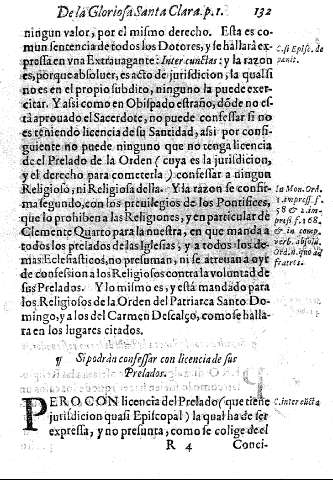 De la Gloriosa Santa Clara. p. 1. 132
ningun valor, por el mismo derecho. Esta es co
mun sentencia de todos los Dotores, y se hallará ex
pressa en vna Extrauagante: Inter cunctas: y la razon
es, porque absoluer, es acto de jurisdicion, la qual si
no es en el propio subdito, ninguno la puede exer-
citar. Y assi como en Obispado estraño, dōde no es-
tà aprouado el Sacerdote, no puede confessar si no
es teniendo licencia de su Santidad, assi por consi-
guiente no puede ninguno que no tenga licencia
de el Prelado de la Orden ( cuya es la jurisdicion,
y el derecho para cometerla ) confessar a ningun
Religioso, ni Religiosa della. Y la razon se confir
ma segundo, con los preuilegios de los Pontifices,
que lo prohiben a las Religiones, y en particular de
Clemente Quarto para la nuestra, en que manda a
todos los prelados de las Iglesias, y a todos los de-
mas Eclesiasticos, no presuman, ni se atreuan a oyr
de confession a los Religiosos contra la voluntad de
sus Prelados. Y lo mismo es, y està mandado para
los Religiosos de la Orden del Patriarca Santo Do-
mingo, y a los del Carmen Descalço, como se halla-
ra en los lugares citados.
C. si Epis. de
pænit.
In Mon. Ord.
1. impress. f.
58 & 2. im-
press f. 168.
& in comp.
verb. absolu.
Ord. n. quo ad
fratres.
¶ Si podràn confessar con licencia de sus
Prelados.
PERO CON licencia del Prelado ( que tiene
jurisdicion quasi Episcopal ) la qual ha de ser
expressa, y no presunta, como se colige de el
C. inter cūcta
R 4 Conci-